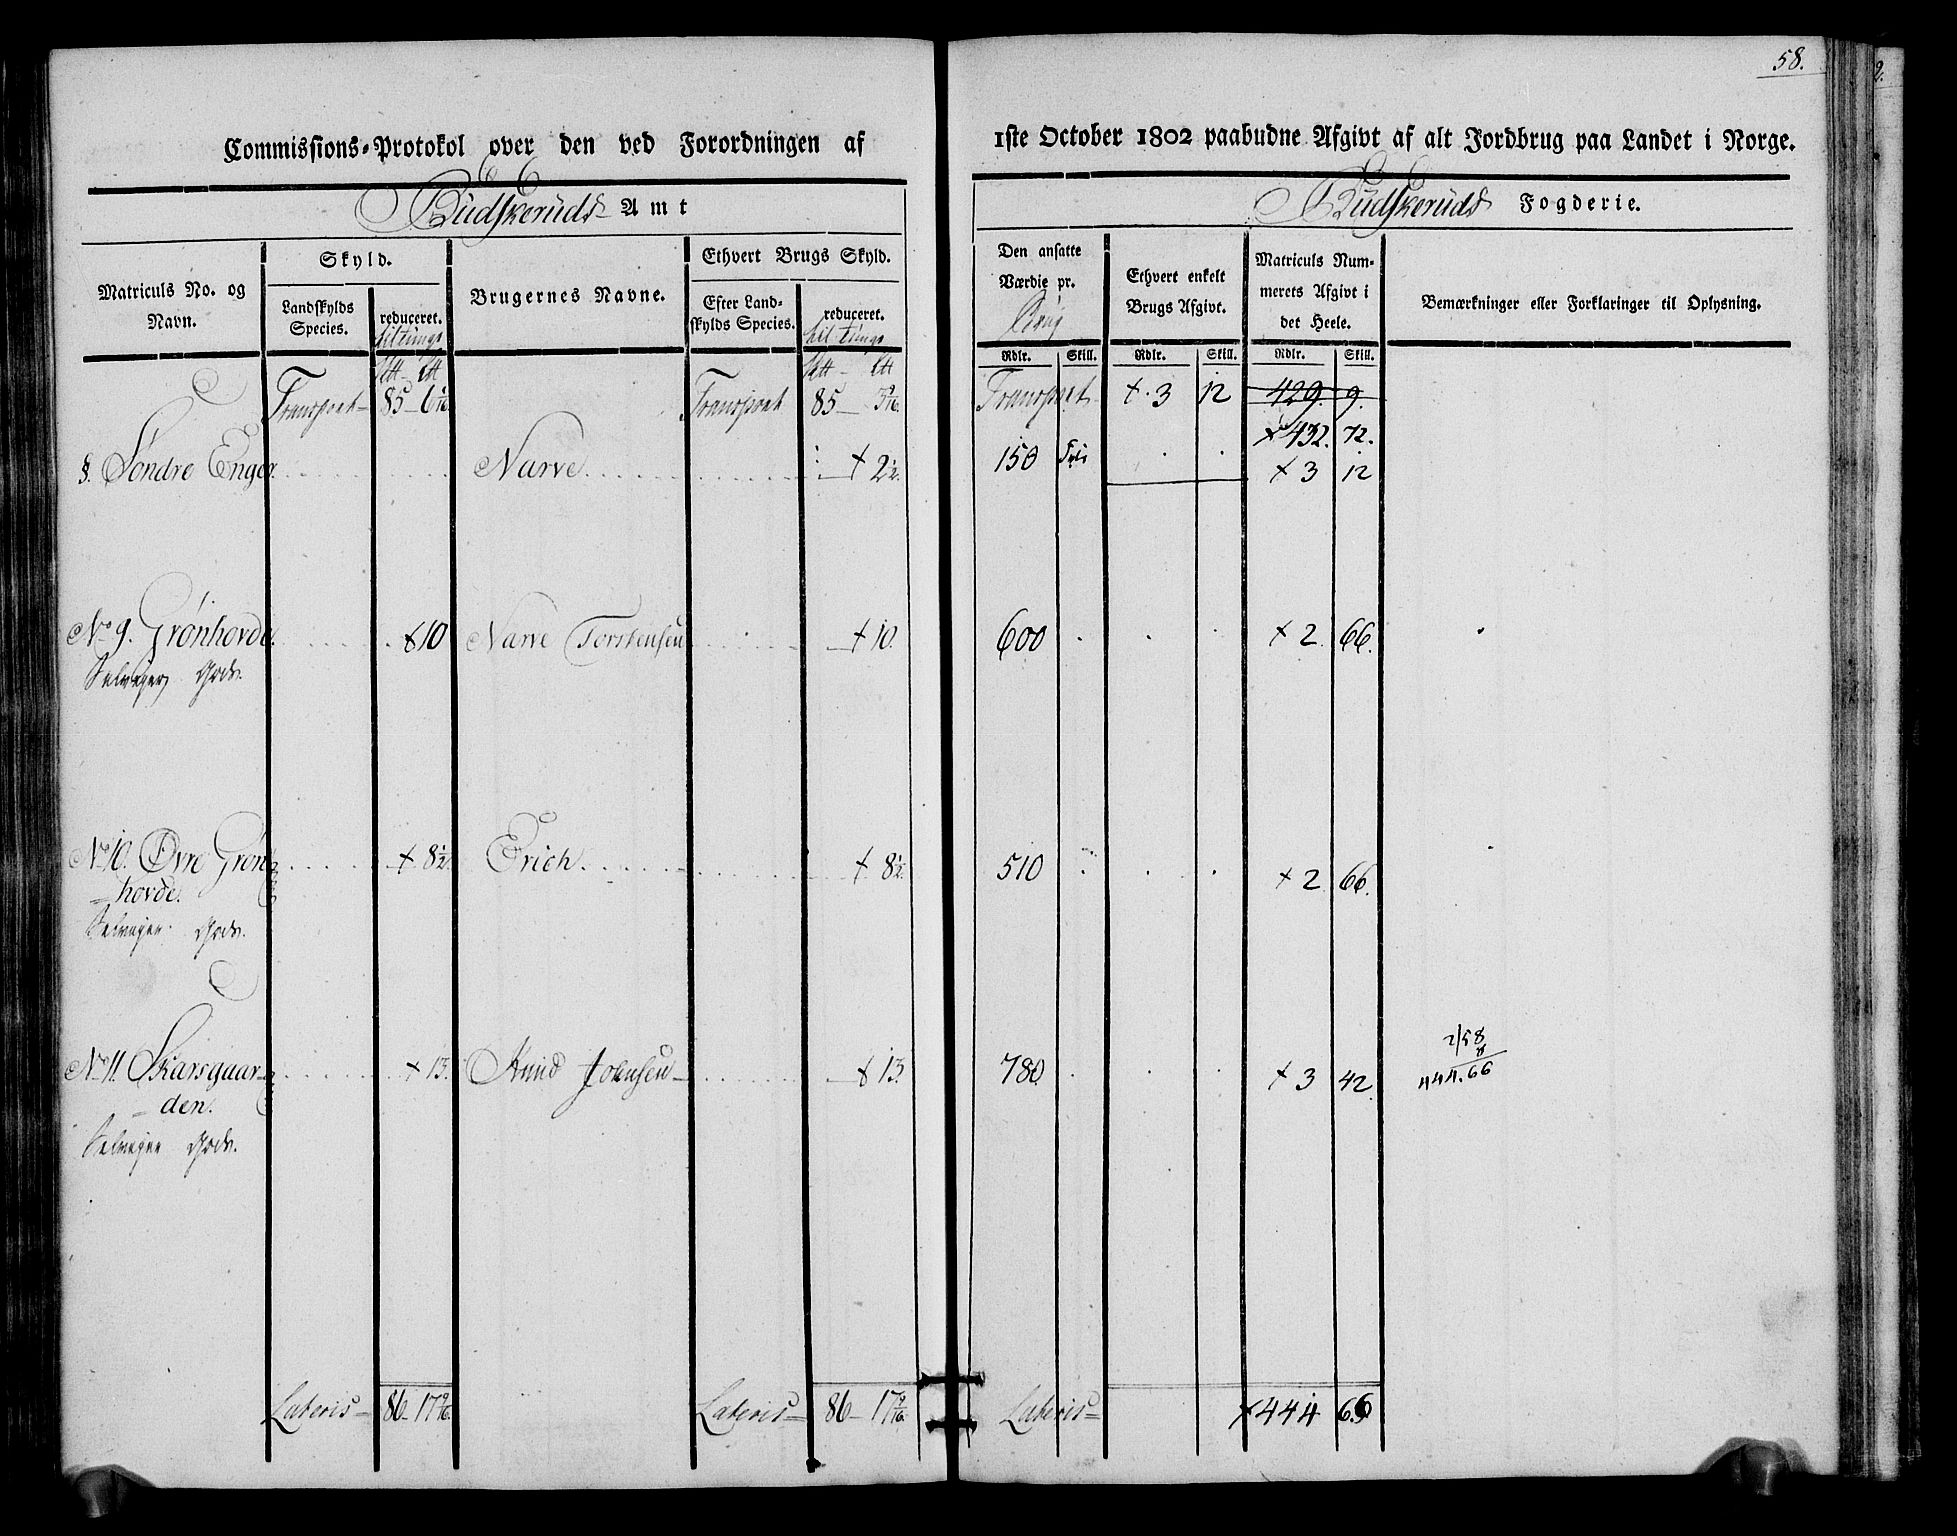 58.
2.
Commissions-Protokol over den ved Forordningen af
1ste October 1802 paabudne Afgivt af alt Jordbrug paa Landet i Norge.
Budskeruds Amt
Budskeruds Fogderie.
Matriculs No. og Navn.
Skyld.
Landskylds Species.
reduceret.
til tunge
Brugernes Navne.
Ethvert Brugs Skyld.
Efter Landskylds Species.
reduceret.
til tunge
Den ansatte Værdie pr.
Brug
Rdlr. Skill.
Ethvert enkelt Brugs Afgivt.
Rdlr. Skill.
Matriculs Nummerets Afgivt i det Heele.
Rdlr. Skill.
Bemærkninger eller Forklaringer til Oplysning.
Transport 85 6 Transport 85 Transport + 3 12 429. 9.
+ 432. 72.
§. Søndre Enger Narve + 2 1/2. 150 + 3 12
No 9. Grønhovde + 10 Narve Torstensen + 10. 600 + 2. 66.
Selveyer Gods.
No 10. Øvre Grøn + 8 1/2. Erich + 8 1/2. 510 + 2 66.
hovde.
Selveyer Gods.
No 11. Skarsgaar + 13. Knud + 13. 780 + 3 42
den.
Selveyer Gods.
444.66
Lateris 86 17 9/16. Lateris 86 17 9/16. Lateris + 444 66